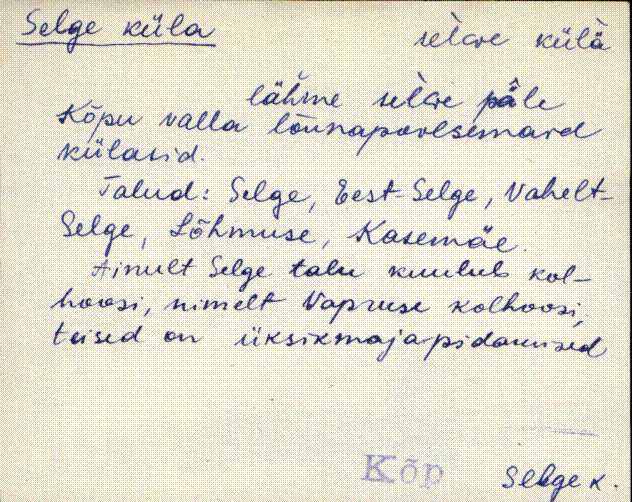 Selge küla
selGe külä
lähme selGe pâle
Kõpu valla lõunapoolsemaid
külasid.
Talud: Selge, Eest-Selge, Vahelt-
Selge, Lõhmuse, Kasemäe.
Ainult Selge talu kuulub kol-
hoosi, nimelt Vapruse kolhoosi,
teised on üksikmajapidamised
Kõp
Selge k.